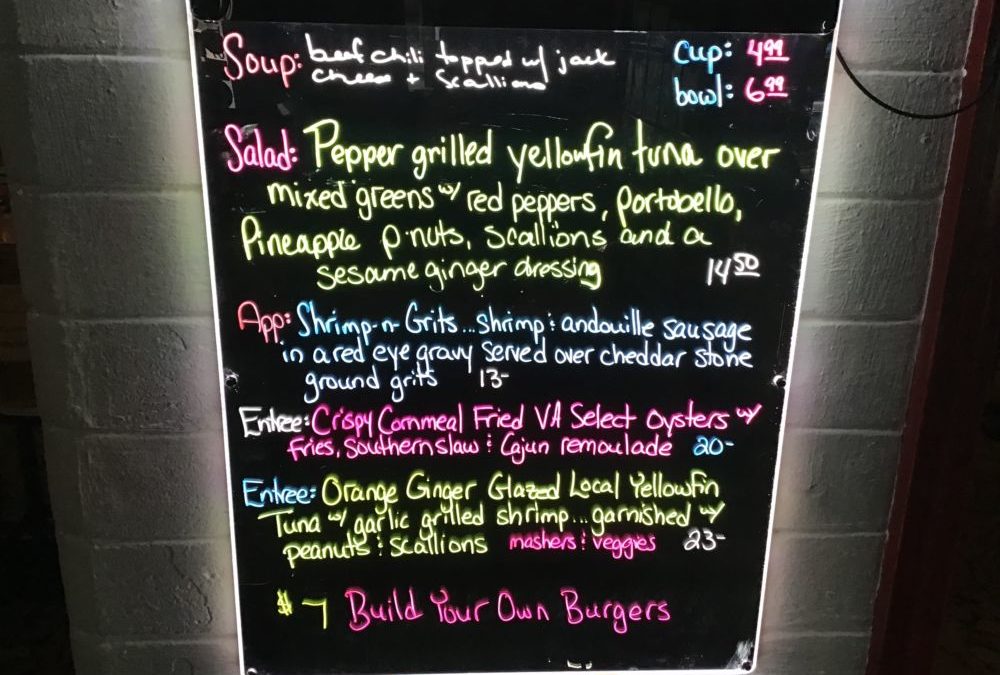 Soup: beef chili topped w/ jack
cheese + scallions
Cup: 4.99
bowl: 6.99
Salad: Pepper grilled yellowfin tuna over
mixed greens w/ red peppers, portobello,
Pineapple p.nuts, scallions and a
sesame ginger dressing 14.50
App: Shrimp-n-Grits...shrimp & andouille sausage
in a red eye gravy served over cheddar stone
ground grits 13-
Entree: Crispy Cornmeal Fried VA Select Oysters w/
Fries, Southern slaw & Cajun remoulade 20-
Entree: Orange Ginger Glazed Local Yellowfin
Tuna w/ garlic grilled shrimp...garnished w/
peanuts & scallions mashers & veggies 23-
$7 Build Your Own Burgers